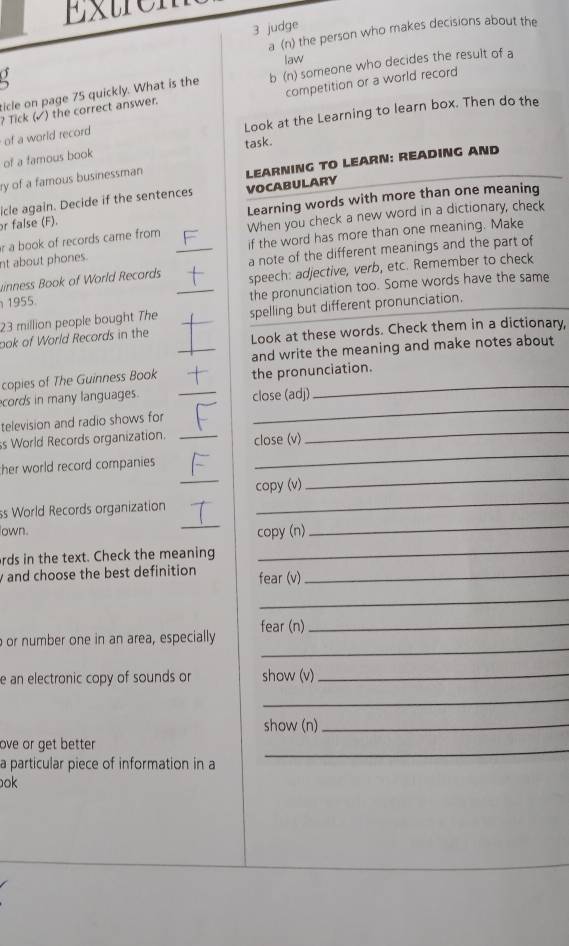 g
ticle on page 75 quickly. What is the
? Tick (✓) the correct answer.
of a world record
of a famous book
ry of a famous businessman
icle again. Decide if the sentences
or false (F).
r a book of records came from F
nt about phones.
uinness Book of World Records T
1955.
23 million people bought The T
ook of World Records in the
copies of The Guinness Book T
ecords in many languages.
television and radio shows for F
ss World Records organization.
her world record companies F
ss World Records organization T
own.
ords in the text. Check the meaning
y and choose the best definition
o or number one in an area, especially
e an electronic copy of sounds or
ove or get better
a particular piece of information in a
ook
3 judge
a (n) the person who makes decisions about the
law
b (n) someone who decides the result of a
competition or a world record
Look at the Learning to learn box. Then do the
task.
LEARNING TO LEARN: READING AND
VOCABULARY
Learning words with more than one meaning
When you check a new word in a dictionary, check
if the word has more than one meaning. Make
a note of the different meanings and the part of
speech: adjective, verb, etc. Remember to check
the pronunciation too. Some words have the same
spelling but different pronunciation.
Look at these words. Check them in a dictionary,
and write the meaning and make notes about
the pronunciation.
close (adj)
close (v)
copy (v)
copy (n)
fear (v)
fear (n)
show (v)
show (n)